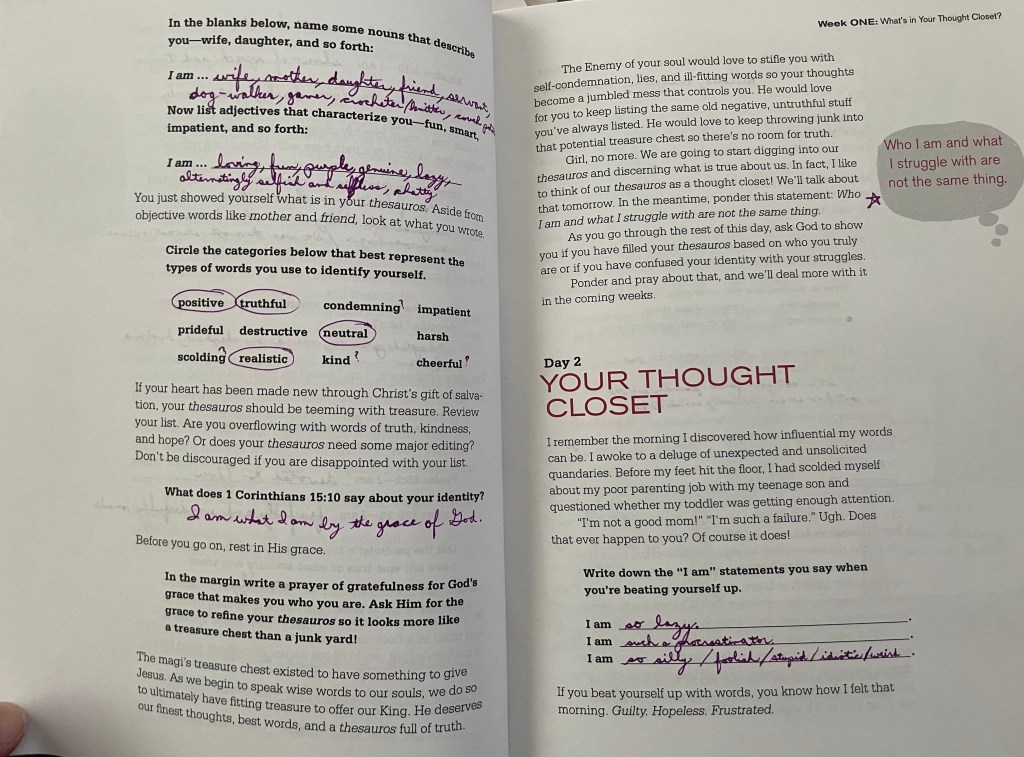 In the blanks below, name some nouns that describe
you—wife, daughter, and so forth:
I am ... wife, mother, daughter, friend, servant,
dog-walker, gamer, crocheter/knitter,
Now list adjectives that characterize you—fun, smart,
impatient, and so forth:
I am ... loving, fun, purple, genuine, lazy,
alternatingly selfish and selfless, chatty
You just showed yourself what is in your thesauros. Aside from
objective words like mother and friend, look at what you wrote.
Circle the categories below that best represent the
types of words you use to identify yourself.
positive truthful condemning? impatient
prideful destructive neutral harsh
scolding? realistic kind? cheerful?
If your heart has been made new through Christ's gift of salva-
tion, your thesauros should be teeming with treasure. Review
your list. Are you overflowing with words of truth, kindness,
and hope? Or does your thesauros need some major editing?
Don't be discouraged if you are disappointed with your list.
What does 1 Corinthians 15:10 say about your identity?
I am what I am by the grace of God.
Before you go on, rest in His grace.
In the margin write a prayer of gratefulness for God's
grace that makes you who you are. Ask Him for the
grace to refine your thesauros so it looks more like
a treasure chest than a junk yard!
The magi's treasure chest existed to have something to give
Jesus. As we begin to speak wise words to our souls, we do so
to ultimately have fitting treasure to offer our King. He deserves
our finest thoughts, best words, and a thesauros full of truth.
Week ONE: What's in Your Thought Closet?
The Enemy of your soul would love to stifle you with
self-condemnation, lies, and ill-fitting words so your thoughts
become a jumbled mess that controls you. He would love
for you to keep listing the same old negative, untruthful stuff
you've always listed. He would love to keep throwing junk into
that potential treasure chest so there's no room for truth.
Girl, no more. We are going to start digging into our
thesauros and discerning what is true about us. In fact, I like
to think of our thesauros as a thought closet! We'll talk about
that tomorrow. In the meantime, ponder this statement: Who
I am and what I struggle with are not the same thing.
As you go through the rest of this day, ask God to show
you if you have filled your thesauros based on who you truly
are or if you have confused your identity with your struggles.
Ponder and pray about that, and we'll deal more with it
in the coming weeks.
Who I am and what
I struggle with are
not the same thing.
Day 2
YOUR THOUGHT
CLOSET
I remember the morning I discovered how influential my words
can be. I awoke to a deluge of unexpected and unsolicited
quandaries. Before my feet hit the floor, I had scolded myself
about my poor parenting job with my teenage son and
questioned whether my toddler was getting enough attention.
"I'm not a good mom!" "I'm such a failure." Ugh. Does
that ever happen to you? Of course it does!
Write down the "I am" statements you say when
you're beating yourself up.
I am so lazy.
I am such a procrastinator.
I am so silly/foolish/stupid/idiotic/weird.
If you beat yourself up with words, you know how I felt that
morning. Guilty. Hopeless. Frustrated.